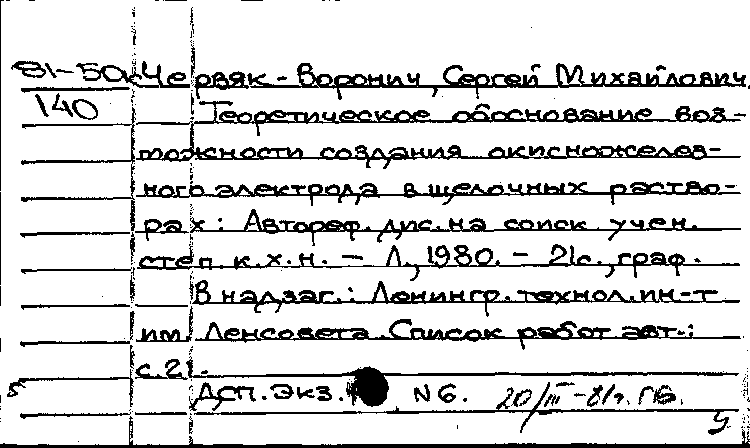 81-50к Червяк-Воронич, Сергей Михайлович
140 Теоретическое обоснование воз-
можности создания окисножелез-
ного электрода в щелочных раство-
рах: Автореф. дис. на соиск учен.
степ. к.х.н. — Л., 1980. — 21с., граф.
В надзаг.: Ленингр. технол. ин-т
им. Ленсовета. Список работ авт.:
с.21.
5 ДСП. Экз. N6. 20/III-81г. ГБ.